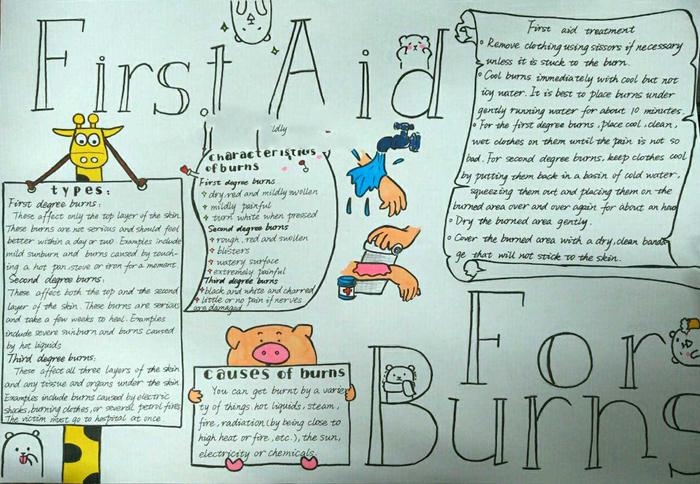 First Aid
For
Burns
types:
First degree burns:
These affect only the top layer of the skin.
These burns are not serious and should feel
better within a day or two. Examples include
mild sunburn and burns caused by touch-
ing a hot pan, stove or iron for a moment.
Second degree burns:
These affect both the top and the second
layer of the skin. These burns are serious
and take a few weeks to heal. Examples
include severe sunburn and burns caused
by hot liquids
Third degree burns:
These affect all three layers of the skin
and any tissue and organs under the skin.
Examples include burns caused by electric
shocks, burning clothes, or severe petrol fires
The victim must go to hospital at once
ldly
Characteristics
of burns
First degree burns
dry, red and mildly swollen
mildly painful
turn white when pressed
Second degree burns
rough, red and swollen
blisters
watery surface
extremely painful
Third degree burns
black and white and charred
little or no pain if nerves
are damaged
causes of burns
You can get burnt by a varie
ty of things: hot liquids, steam,
fire, radiation (by being close to
high heat or fire, etc.), the sun,
electricity or chemicals.
First aid treatment
Remove clothing using sissors if necessary
unless it is stuck to the burn.
Cool burns immediately with cool but not
icy water. It is best to place burns under
gently running water for about 10 minutes.
For the first degree burns, place cool, clean,
wet clothes on them until the pain is not so
bad. For second degree burns, keep clothes cool
by putting them back in a basin of cold water,
squeezing them out and placing them on the
burned area over and over again for about an
Dry the burned area gently.
Cover the burned area with a dry, clean banda
ge that will not stick to the skin.